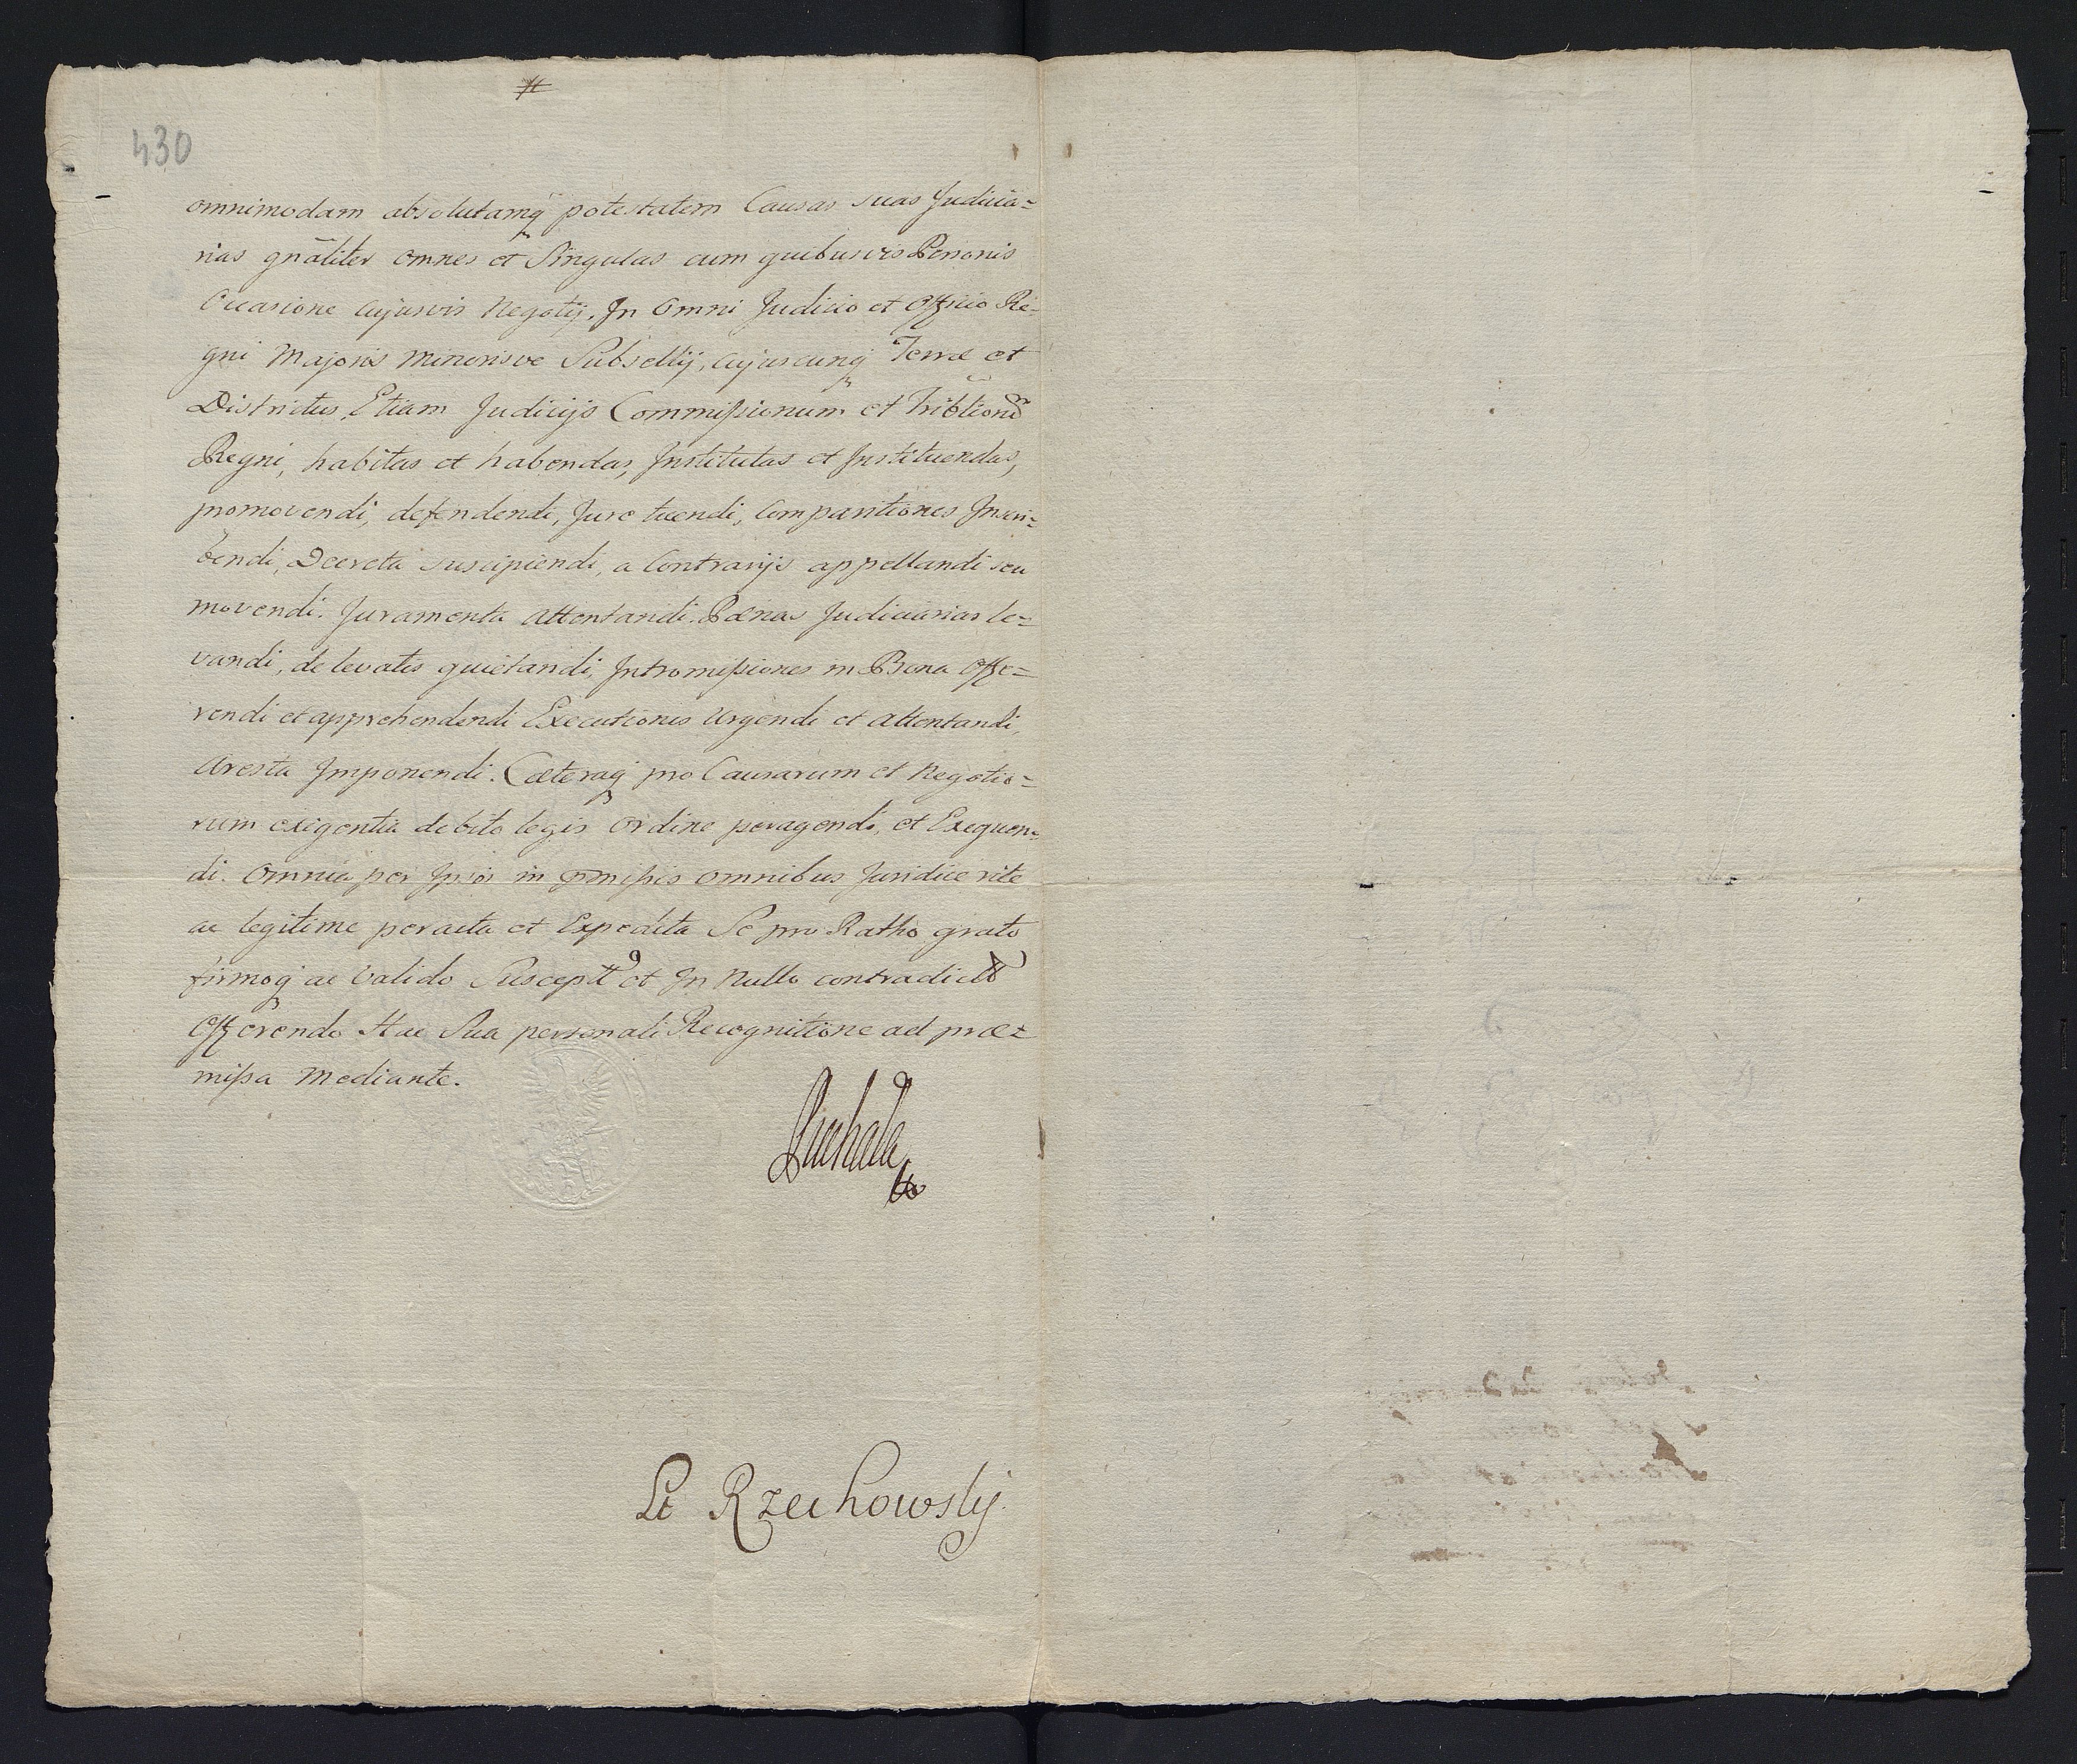 430
omnimodam absolutamq potestatem Causas suas Judicia=
rias gnãliter omnes et Singulas cum quibusvis Personis
Occasione cujusvis Negotij, In Omni Judicio et Officio Re=
gni Majoris Minorisve Subsellij, cujuscunq Terræ et
Districtus, Etiam Judicijs Commissionum et
Regni, habitas et habendas, Institutas et Instituendas,
promovendi, defendendi, Jure tuendi, Comparitiones Inscri=
bendi, Decreta suscipiendi, a Contrarijs appellandi seu
movendi. Juramenta Attentandi. Pænas Judiciarias le=
vandi, de levatis quietandi, Intromissiones in Bona Offe=
rendi et apprehendendi Executiones Urgendi et Attentandi,
Aresta Imponendi. Cæteraq pro Causarum et Negotio=
rum exigentia debito legis Ordine peragendi, et Exequen=
di. Omnia per Ipsos in pmissis Omnibus Juridice rite
ac legitime peracta et Expedita Se pro Ratho grato
firmoq ac Valido Suscept et In Nullo contradict
Offerendo Hac Sua personali Recognitione ad præ=
missa Mediante.
Lt Rzechowsky